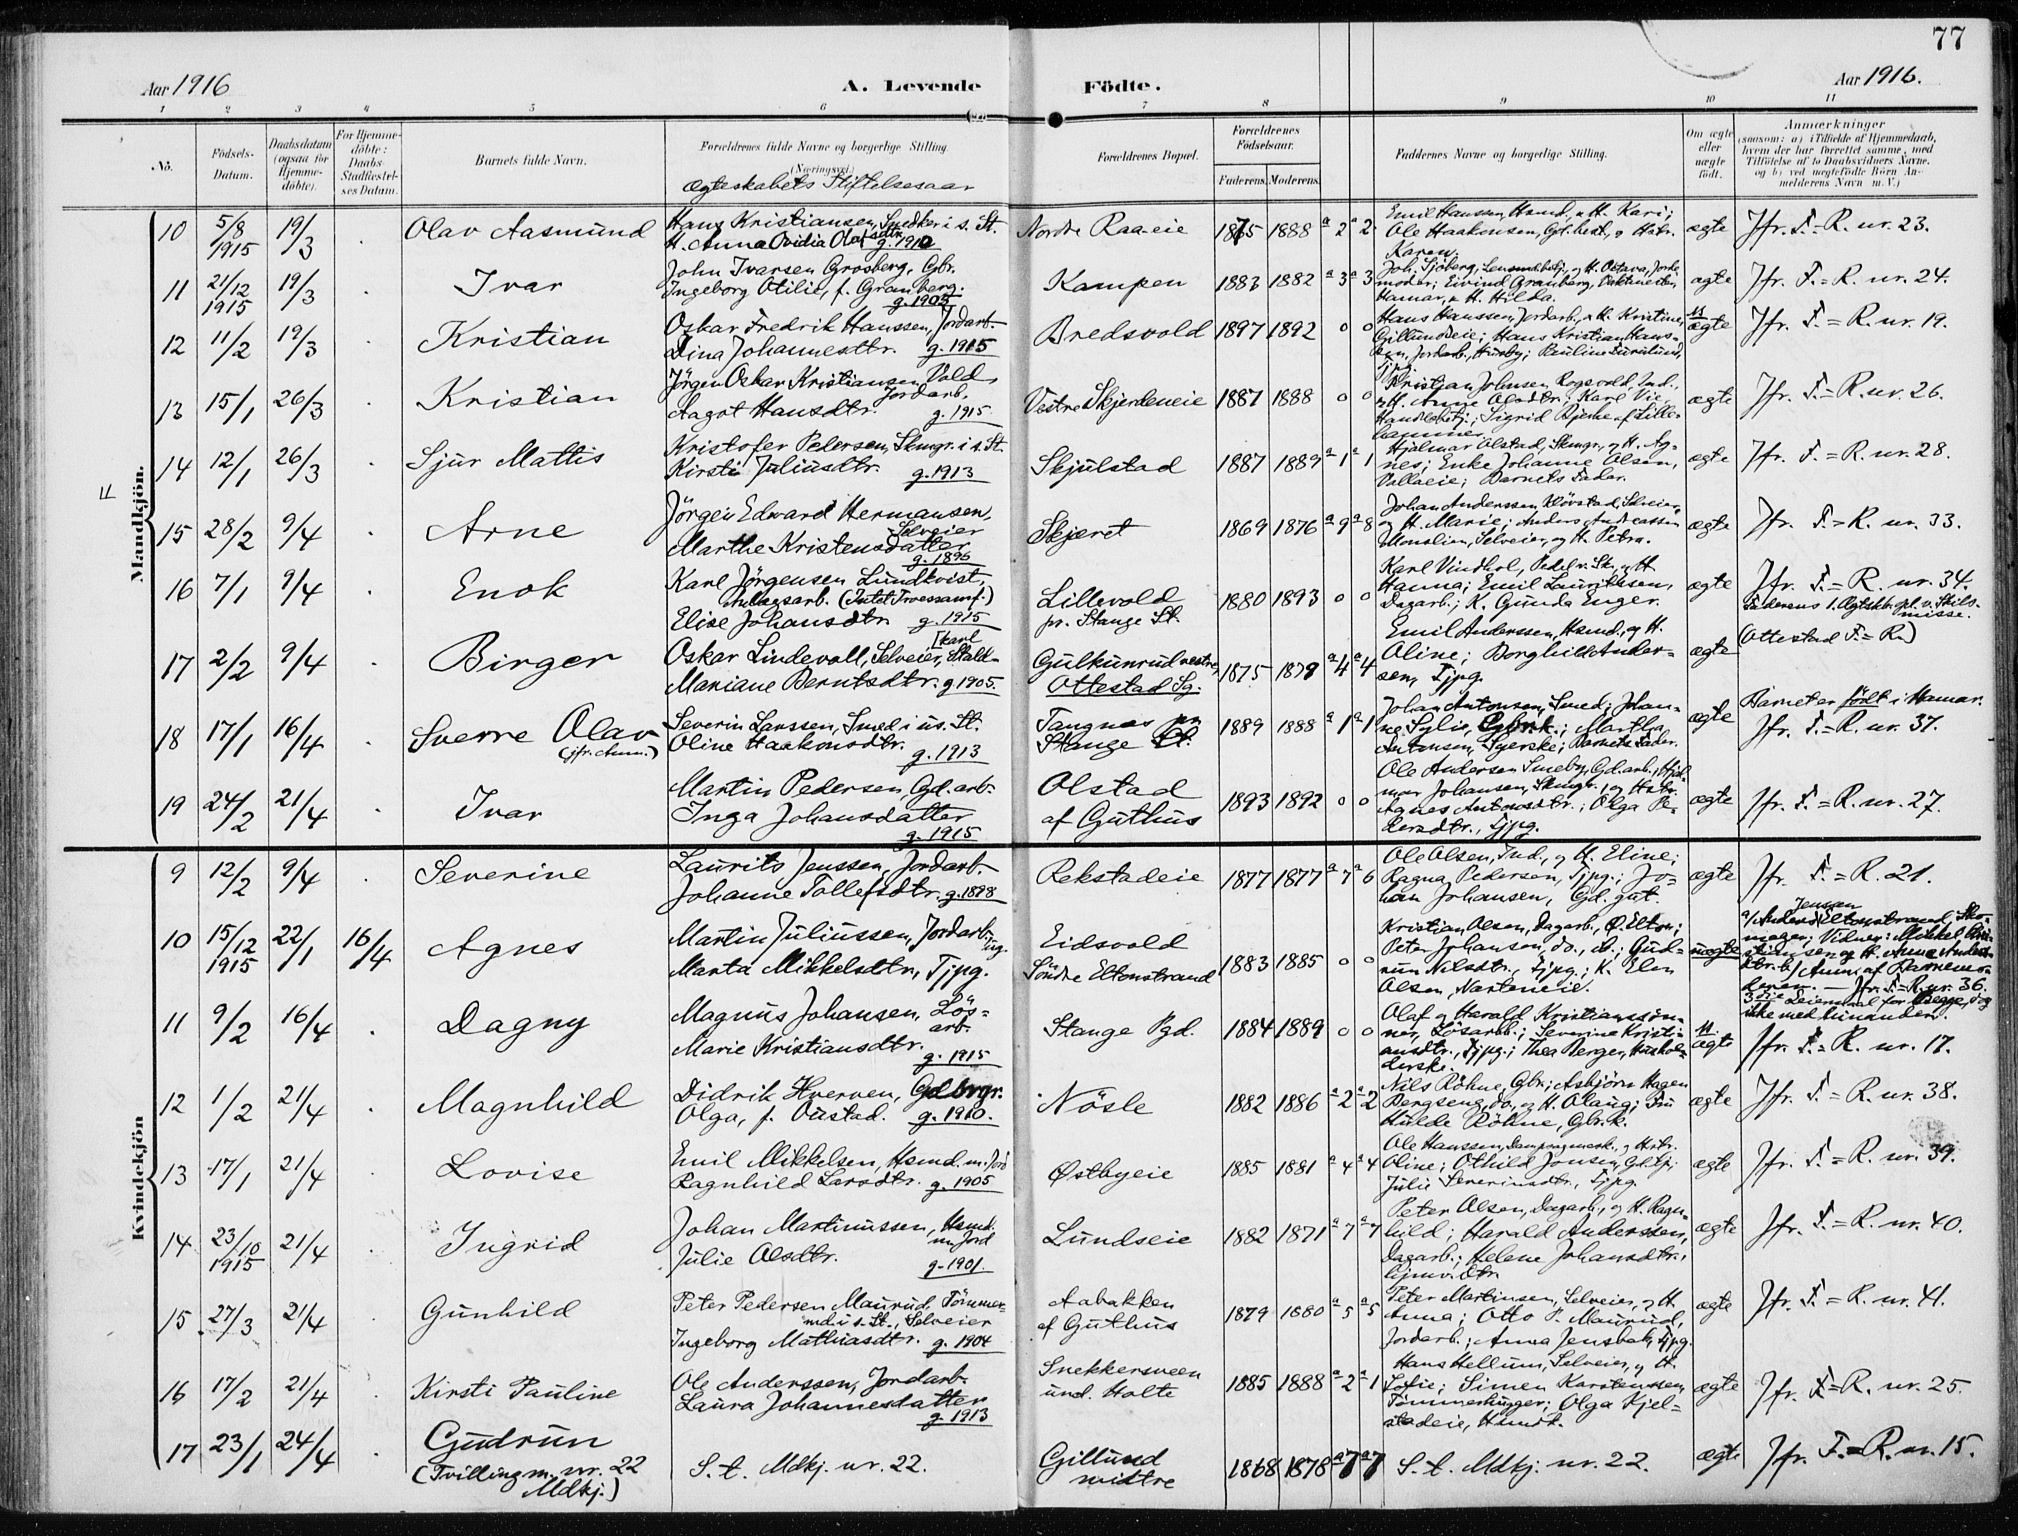 77
Aar 1916
A. Levende
Födte.
Aar 1916.
1 2 3 4 5 6 7 8 9 10 11
No.
Födsels-
Datum.
Daabsdatum
(ogsaa for
Hjemme-
döbte).
For Hjemme-
döbte:
Daabs-
Stadfestel-
ses Datum.
Barnets fulde Navn.
Forældrenes fulde Navne og borgerlige Stilling
(Næringsvei)
Ægteskabets Stiftelsesaar
Forældrenes Bopæl.
Forældrenes
Födselsaar.
Faderens. Moderens.
Faddernes Navne og borgerlige Stilling.
Om ægte
eller
uægte
födt.
Anmærkninger
(saasom: a) i Tilfælde af Hjemmedaab,
hvem der har forrettet samme, med
Tilföielse af to Daabsvidners Navne.
og b) ved uægtefödte Börn An-
melderens Navn m. V.)
Mandkjön.
10 5/8 1915 19/3 Olav Aasmund
Hans Kristiansen, Snedker i s. St.
H. Anna Ovidia Olafsdtr. g. 1910
Nordre Raaeie 1875 1888 a 2 a 2
Emil Hanssen, Hsmd., H. Kari;
Ole Haakensen, Gd.best., og Hstr.
Karen.
ægte Jfr. F.=R. nr. 23.
11 21/12 1915 19/3 Ivar
John Ivarsen Grosberg, Gbr.
Ingeborg Otilie, f. Granberg.
g. 1903
Kampen 1883 1882 a 3 a 3
Joh. Sjöberg, Lensmd.betj., og H. Octava, Jorde-
moder; Eivind Granberg,
Hamar, H. Hilda.
ægte Jfr. F.=R. nr. 24.
12 11/2 19/3 Kristian
Oskar Fredrik Hanssen, Jordarb.
Dina Johannesdtr. g. 1915
Bredsvold 1897 1892 0 0
Hans Hanssen, Jordarb., H. Kristine,
Gillundseie; Hans Kristian Hans-
sen, Jordarb., Husby; Pauline
Tjpg.
ægte Jfr. F.=R. nr. 19.
13 15/1 26/3 Kristian
Jörgen Oskar Kristiansen Vold,
Jordarb.
Aagot Hansdtr. g. 1915
Vestre Skjerdeneie 1887 1888 0 0
Kristian Johnsen Rogsvold, Ind.,
H. Anne Olsdtr.; Karl Vie,
Handelsbetj.; Sigrid Bjerke af Lille-
hammer
ægte Jfr. F.=R. nr. 26.
14 12/1 26/3 Sjur Mattis
Kristofer Pedersen, Skmgr. i s. St.
Kirsti Juliusdtr. g. 1913
Skjulstad 1887 1889 a 1 a 1
Hjalmar Olstad, Skmgr., og H. Ag-
nes; Enke Johanne Olsen,
Vallaeie; Barnets Fader.
ægte Jfr. F.=R. nr. 28.
15 28/2 9/4 Arne
Jörgen Edvard Hermansen,
Selveier
Marthe Kristensdatter
g. 1896
Skjæret 1869 1876 a 9 a 8
Johan Anderssen Klövstad, Selveier,
og H. Marie; Anders Andreassen
Monslien, Selveier, og H. Petra.
ægte Jfr. F.=R. nr. 33.
16 7/1 9/4 Enok
Karl Jörgensen Lundkvist,
Anlægsarb. (Intet Troessamf.)
Elise Johansdtr. g. 1915
Lillevold
pr. Stange St. 1880 1893 0 0
Karl Vindhol, Pedel v. Sk., H.
Hanna; Emil Lauritssen,
Dagarb.; K. Gunda Enger.
ægte Jfr. F.=R. nr. 34.
Faderens 1. Ægtskb. opl. v. Skils-
misse.
17 2/2 9/4 Birger
Oskar Lindevoll, Selveier, Stald-
[karl
Mariane Berntsdtr. g 1905.
Gulkunrud vestre,
Ottestad Sg. 1875 1879 a 4 a 4
Emil Anderssen, Hsmd., og H.
Oline; Borghild Ander-
sen, Tjpg.
ægte (Ottestad F.=R.)
18 17/1 16/4 Sverre Olav
(jfr. Anm.)
Severin Larssen, Smed i us. St.
Oline Haakonsdtr.
g. 1913
Tangnes
Stange 1889 1888 a 1 a 1
Johan Antonsen, Smed; Johan-
ne Sylju, Gbr.k.; Marthe
Antonsen, Syerske; Barnets Fader.
ægte Barnet er födt i Hamar.
Jfr. F.=R. nr. 37.
19 24/2 21/4 Ivar
Martin Pedersen, Gd.arb.
Inga Johansdatter
g. 1915
Olstad
af Guthus 1893 1892 0 0
Ole Andersen Smeby, Gd.arb., Hjal-
mar Johansen, Skmgr., og Hstr.
Agnes Antonsdtr.; Olga Pe-
dersdtr., Tjpg.
ægte Jfr. F.=R. nr. 27.
Kvindekjön
9 12/2 9/4 Severine
Laurits Jenssen, Jordarb.
Johanne Tollefsdtr. g. 1898
Rekstadeie 1877 1877 a 7 a 6
Ole Olsen, Ind., og H. Eline;
Ragna Pedersen, Tjpg.; Jo-
han Johansen, Gd.gut.
ægte Jfr. F.=R. 21.
10 15/12 1915 22/1 16/4 Agnes
Martin Juliussen, Jordarb., ug.
Marta Mikkelsdtr., Tjpg.
Eidsvold
Söndre Eltonstrand 1883 1885 0 0
Kristian Olsen, Dagarb., Ø. Elton;
Peter Johansen, do., do.; Gud-
run Nilsdtr., Tjpg.; K. Elen
Olsen, Narteneie.
uægte
a/ Anders Jensen Eltonstrand, Sko-
mager; Vidner: Mikkel Kri-
stiansen og H. Anne Anders-
dtr. b/ Anm. af Barnemo-
deren. — Jfr. F.=R. nr. 36.
3die Leiermaal for Begge, dog
ikke med hinanden.
11 9/2 16/4 Dagny
Magnus Johansen, Lös-
arb.
Marie Kristiansdtr.
g. 1915
Stange Pgd. 1884 1889 0 0
Olaf og Harald Kristianssön-
ner, Lösarb.; Severine Kristi-
ansdtr., Tjpg.; Thea Berger, Hushol-
derske.
ægte Jfr. F.=R. nr. 17.
12 1/2 21/4 Magnhild
Didrik Hverven, Gdbrgr.
Olga, f. Oustad. g. 1910.
Nösle 1882 1886 a 2 a 2
Nils Röhne, Gbr.; Asbjörn Hagen
Bergseng, do., og H. Olaug; Fru
Hulde Röhne, Gbr.k.
ægte Jfr. F.=R. nr. 38.
13 17/1 21/4 Lovise
Emil Mikkelsen, Hsmd. m. Jord
Ragnhild Larsdtr. g. 1905
Østbyeie 1885 1881 a 4 a 4
Ole Hanssen, og Hstr.
Oline; Othild Jonsen,
Julie Severinsdtr., Tjpg.
ægte Jfr. F.=R. nr. 39.
14 23/10 1915 21/4 Ingrid
Johan Martinussen, Hsmd.
m. Jord
Julie Olsdtr. g. 1901.
Lundseie 1882 1871 a 7 a 7
Peter Olsen, Dagarb., og H. Ragn-
hild; Harald Anderssen,
Dagarb.; Helene Johansdtr.,
Hjmv. Dtr.
ægte Jfr. F.=R. nr. 40.
15 27/3 21/4 Gunhild
Peter Pedersen Maurud, Tömmer-
md. i s. St., Selveier
Ingeborg Mathiasdtr. g. 1904
Aabakken
af Guthus 1879 1880 a 5 a 5
Peter Martinsen, Selveier, og H.
Anna; Otto P. Maurud,
Jordarb.; Anna Jensbak, Tjpg.
ægte Jfr. F.=R. nr. 41.
16 17/2 21/4 Kirsti Pauline
Ole Anderssen, Jordarb.
Laura Johannesdatter
g. 1913
Snekkersveen
und. Holte 1885 1888 a 2 a 1
Hans Hellum, Selveier, og H.
Sofie; Simen Karstenssen,
Tömmerhugger; Olga Kjel-
stadeie, Hsmdt.
ægte Jfr. F.=R. nr. 25.
17 23/1 24/4 Gudrun
(Tvilling m. nr. 22
Mdkj.)
S. t. Mdkj. nr. 22.
Gillund
midtre 1868 1878 a 7 a 7
S. t. Mdkj. nr. 22.
ægte Jfr. F.=R. nr. 15.